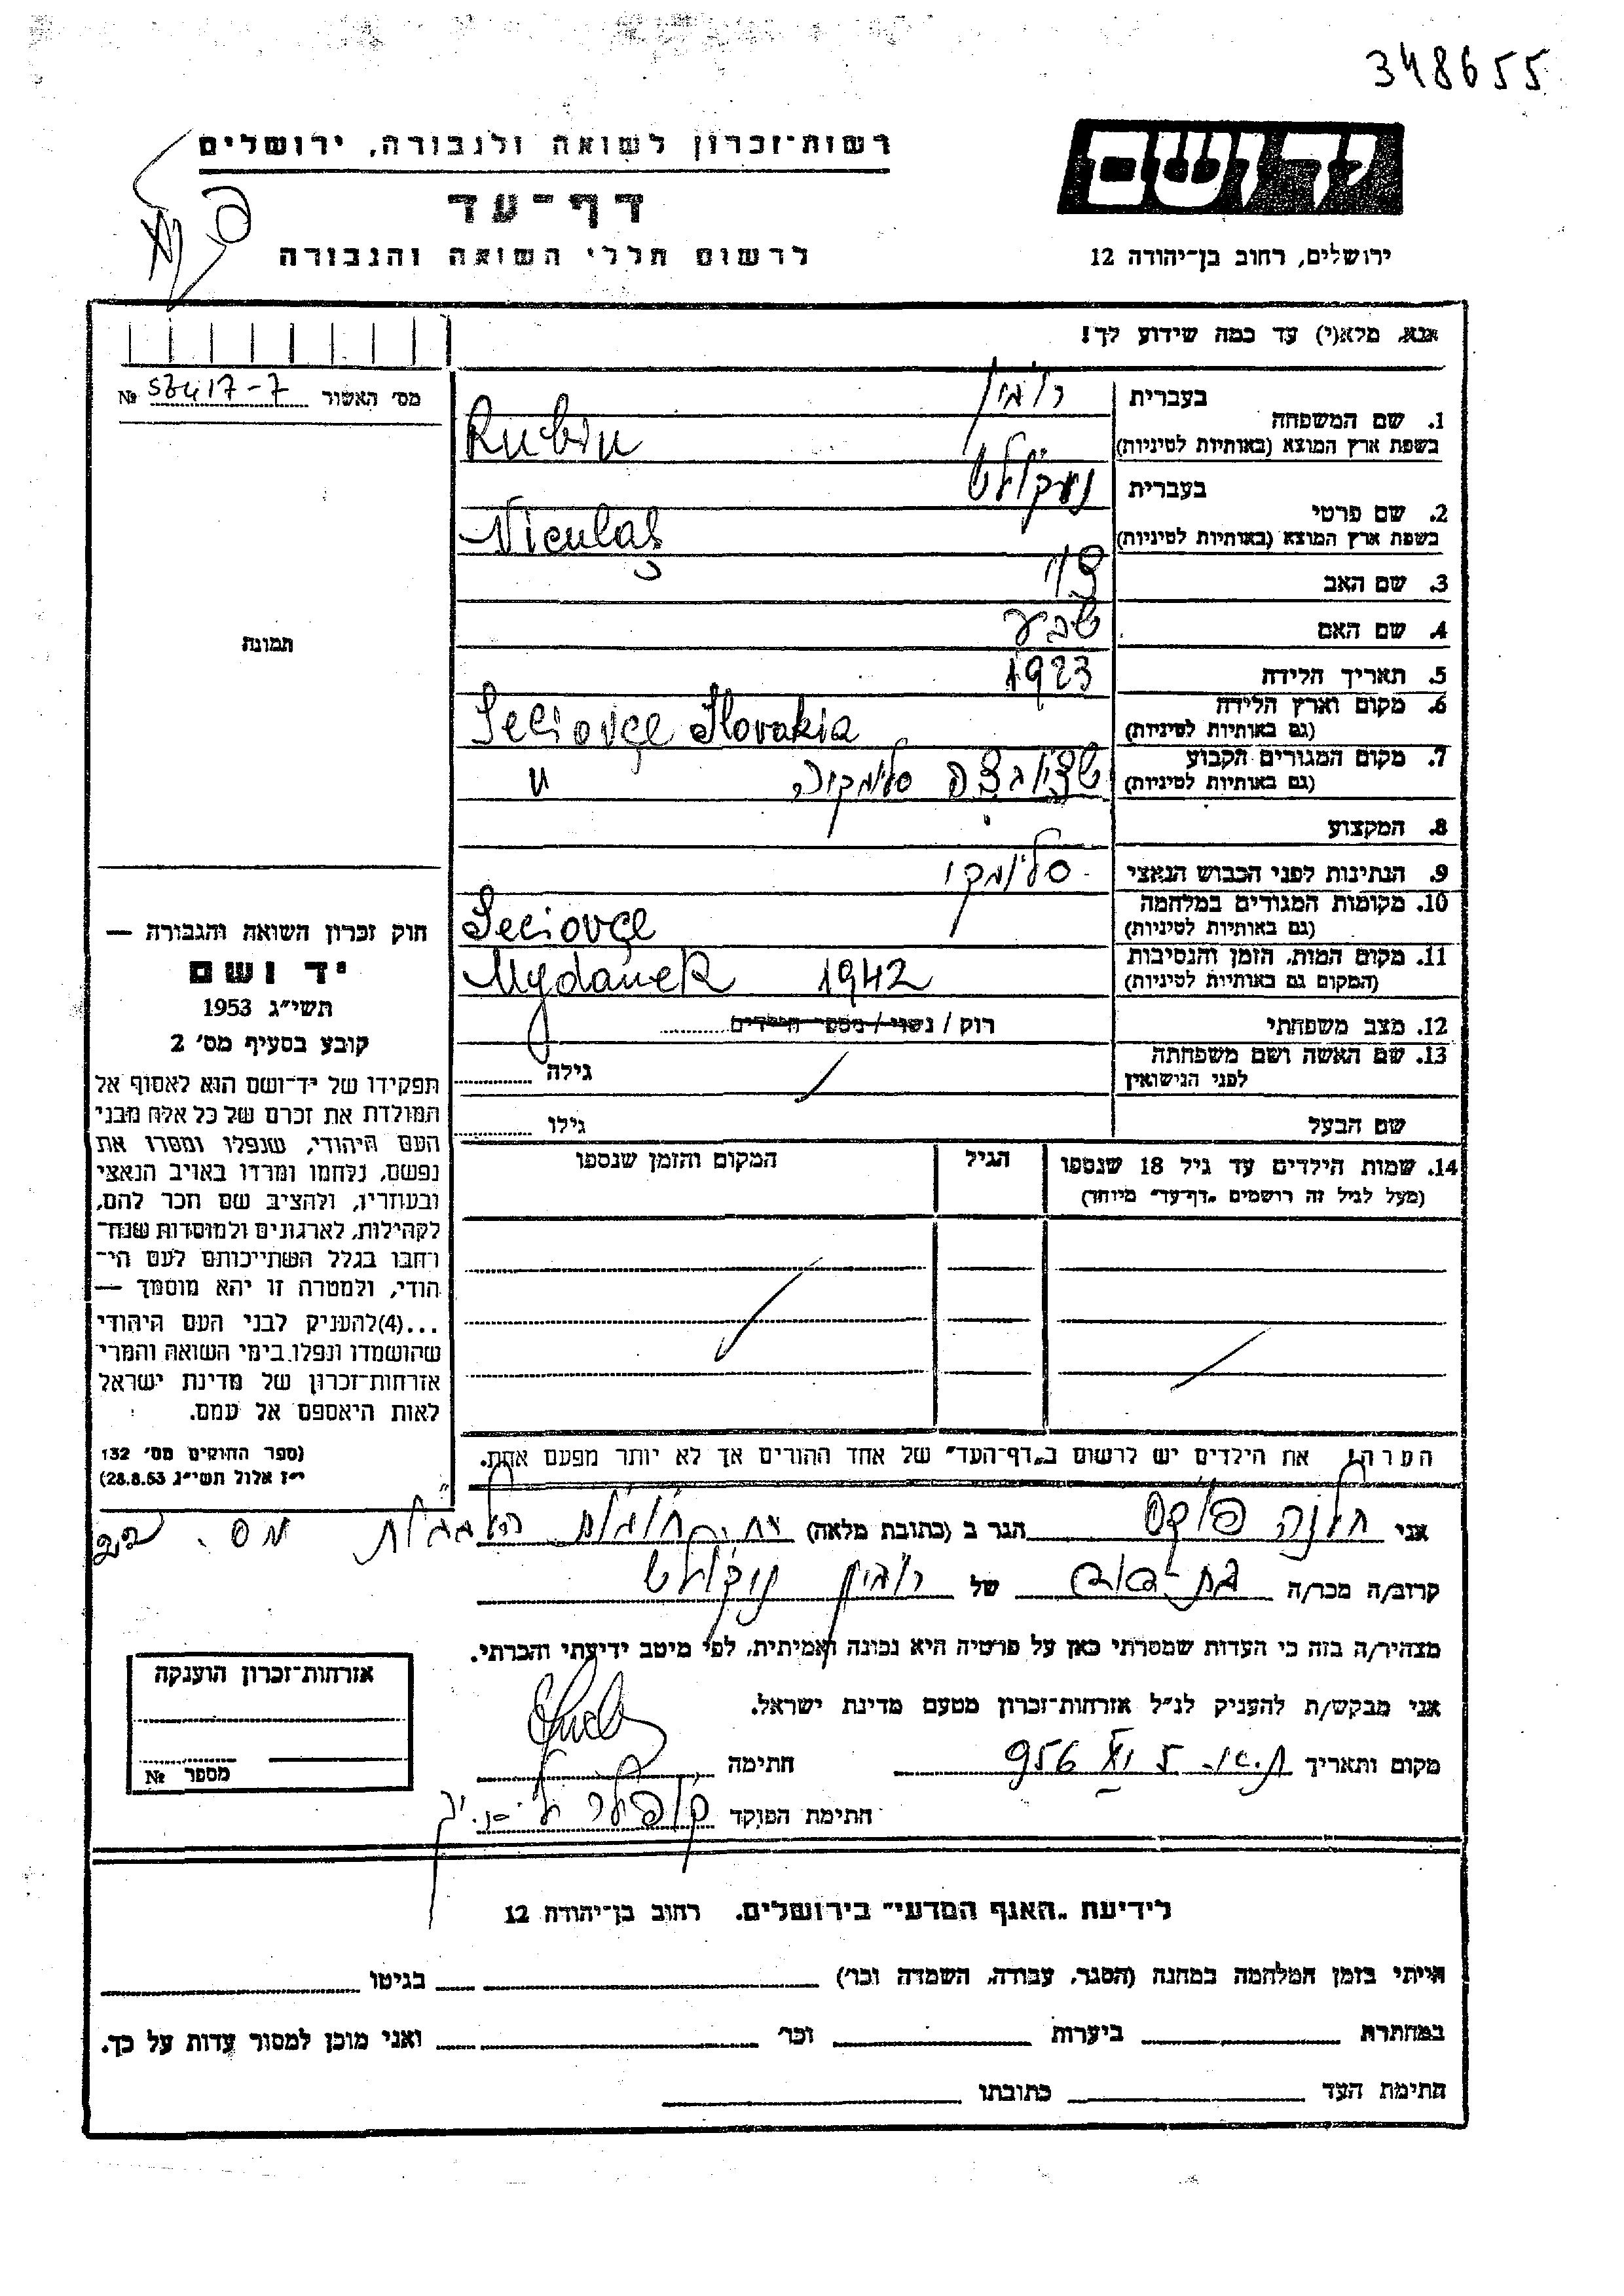 348655
יד ושם
רשות־זכרון לשואה ולגבורה, ירושלים
דף־עד
לרשום חללי השואה והגבורה
ירושלים, רחוב בן־יהודה 12
אנא, מלא(י) עד כמה שידוע לך!
מס׳ האשור № 57417-7
תמונה
1. שם המשפחה בעברית רובין
בשפת ארץ המוצא (באותיות לטיניות) Rubin
2. שם פרטי בעברית
בשפת ארץ המוצא (באותיות לטיניות) Niculaş
3. שם האב
4. שם האם שבע
5. תאריך הלידה 1923
6. מקום וארץ הלידה
(גם באותיות לטיניות) Seciovçe Slovakia
7. מקום המגורים הקבוע
(גם באותיות לטיניות) "
8. המקצוע
9. הנתינות לפני הכבוש הנאצי סלובקי
10. מקומות המגורים במלחמה
(גם באותיות לטיניות) Seciovçe
11. מקום המות, הזמן והנסיבות
(המקום גם באותיות לטיניות) Mydanek 1942
12. מצב משפחתי רוק / נשוי / מספר הילדים
13. שם האשה ושם משפחתה
לפני הנישואין גילה
שם הבעל גילו
14. שמות הילדים עד גיל 18 שנספו הגיל המקום והזמן שנספו
(מעל לגיל זה רושמים „דף־עד״ מיוחד)
חוק זכרון השואה והגבורה —
יד ושם
תשי״ג 1953
קובע בסעיף מס׳ 2
תפקידו של יד־ושם הוא לאסוף אל
המולדת את זכרם של כל אלה מבני
העם היהודי, שנפלו ומסרו את
נפשם, נלחמו ומרדו באויב הנאצי
ובעוזריו, ולהציב שם וזכר להם,
לקהילות, לארגונים ולמוסדות שנח־
רחבו בגלל השתייכותם לעם הי־
הודי, ולמטרה זו יהא מוסמך —
...(4)להעניק לבני העם היהודי
שהושמדו ונפלו בימי השואה והמרי
אזרחות־זכרון של מדינת ישראל
לאות היאספם אל עמם.
(ספר החוקים מס׳ 132
י״ז אלול תשי״ג 28.8.53)
הערה! את הילדים יש לרשום ב„דף־העד״ של אחד ההורים אך לא יותר מפעם אחת.
אני הגר ב (כתובת מלאה) מס. 22
קרוב/ה מכר/ה בת־דוד של רובין
מצהיר/ה בזה כי העדות שמסרתי כאן על פרטיה היא נכונה ואמיתית, לפי מיטב ידיעתי והכרתי.
אני מבקש/ת להעניק לנ״ל אזרחות־זכרון מטעם מדינת ישראל.
מקום ותאריך 956 חתימה
חתימת הפוקד
אזרחות־זכרון הוענקה
מספר №
לידיעת „האגף המדעי״ בירושלים. רחוב בן־יהודה 12
הייתי בזמן המלחמה במחנה (הסגר, עבודה, השמדה וכו׳) בגיטו
במחתרת ביערות וכו׳ ואני מוכן למסור עדות על כך.
חתימת העד כתובתו